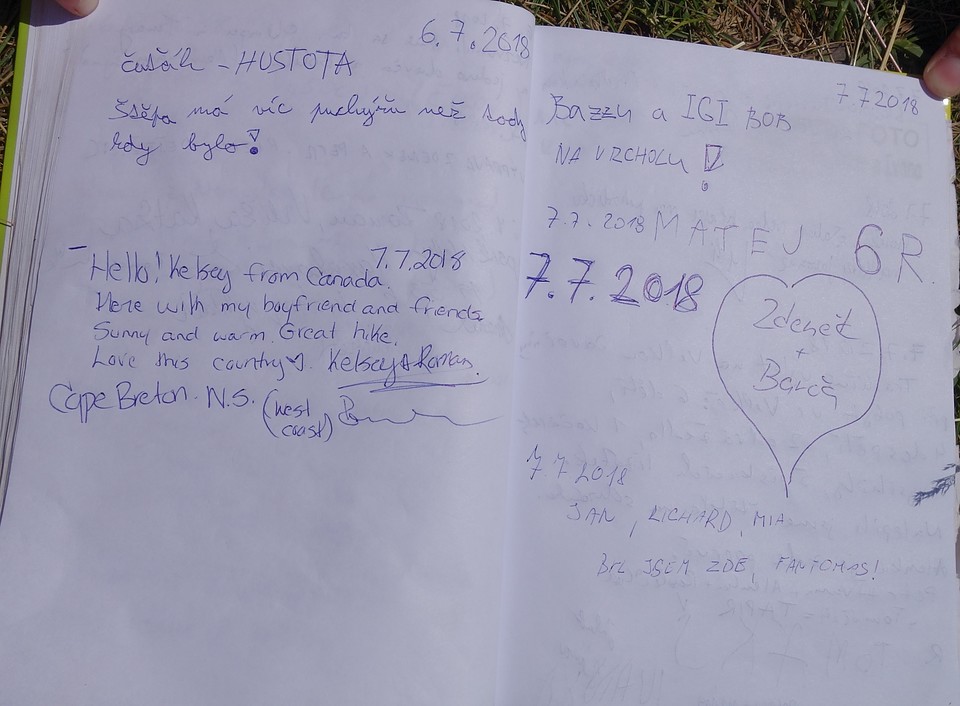 6.7.2018
čučák - HUSTOTA
Štěpa má víc puchýřů než tady
kdy bylo!
- Hello! Kelsey from Canada. 7.7.2018
Here with my boyfriend and friends.
Sunny and warm. Great hike.
Love this country♡. Kelsey & Roman.
Cape Breton. N.S. (west
coast)
7.7.2018
Bazzu a IGI BOB
NA VRCHOLU!
7.7.2018 MATEJ 6R
7.7.2018
Zdeněk
+
Barča
7.7.2018
JAN, RICHARD, MIA
BYL JSEM ZDE, FANTOMAS!